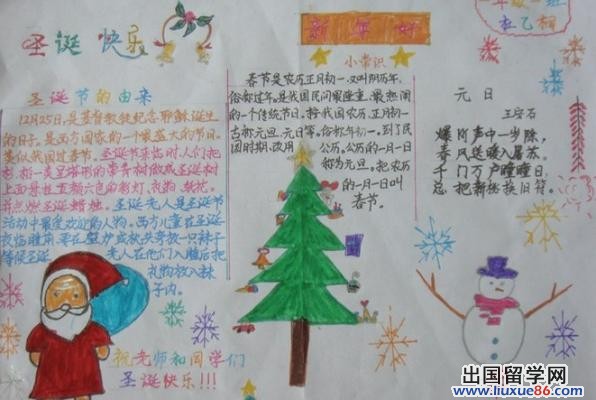 圣诞快乐
圣诞节的由来
12月25日,是基督教徒纪念耶稣诞生
的日子。是西方国家的一个最盛大的节日。
类似我国过春节。圣诞节来临时,人们把
杉、柏一类呈塔形的常青树做成圣诞树
上面悬挂五颜六色的彩灯、礼物、纸花。
并点燃圣诞蜡烛。圣诞老人是圣诞节
活动中最受欢迎的人物。西方儿童在圣诞
夜临睡前,要在壁炉或枕头旁放一只袜子
等候圣诞 老人在他们入睡后把
礼物放入袜
子内。
祝老师和同学们
圣诞快乐!!!
新年好
小常识
春节是农历正月初一,又叫阴历年,
俗称过年。是我国民间最隆重、最热闹
的一个传统节日。按我国农历,正月初一
古称元旦、元日等,俗称年初一。到了民
国时期,改用 公历,公历的一月一日
称为元旦。把农历
的一月一日叫
春节。
元日
王安石
爆竹声中一岁除,
春风送暖入屠苏。
千门万户曈曈日,
总把新桃换旧符。
出国留学网
www.liuxue86.com